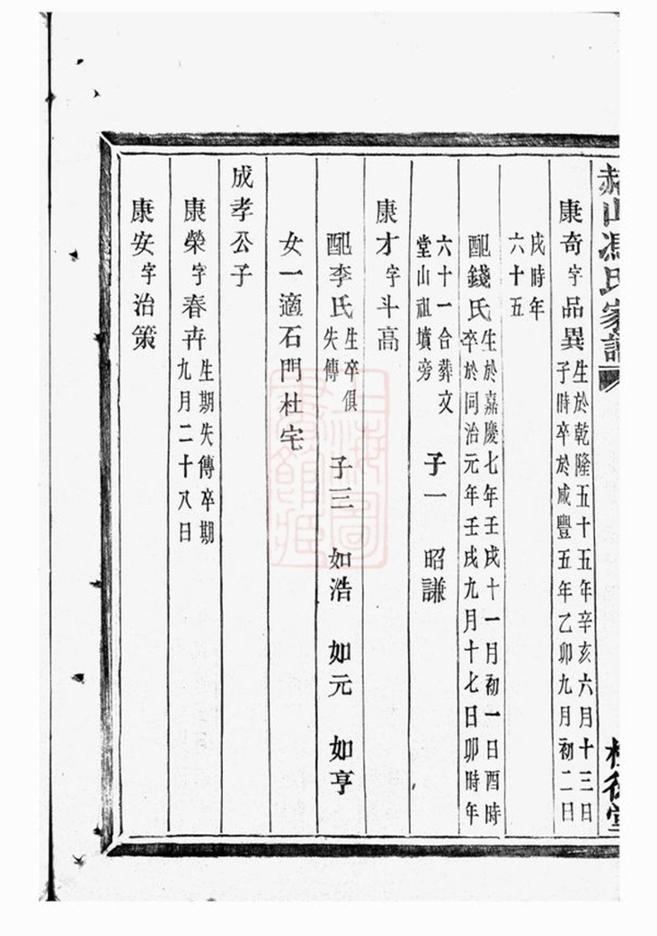 山馮氏家譜
康奇字品異
生於乾隆五十五年辛亥六月十三日
子時卒於咸豐五年乙卯九月初二日
戌時年
六十五
配錢氏
生於嘉慶七年壬戌十一月初一日酉時
卒於同治元年壬戌九月十七日卯時年
六十一合葬文
堂山祖墳旁
子一 昭謙
康才字斗高
配李氏
生卒俱
失傳
子三 如浩 如元 如亨
女一適石門杜宅
成孝公子
康榮字春卉
生期失傳卒期
九月二十八日
康安字治策
上海圖
書館藏